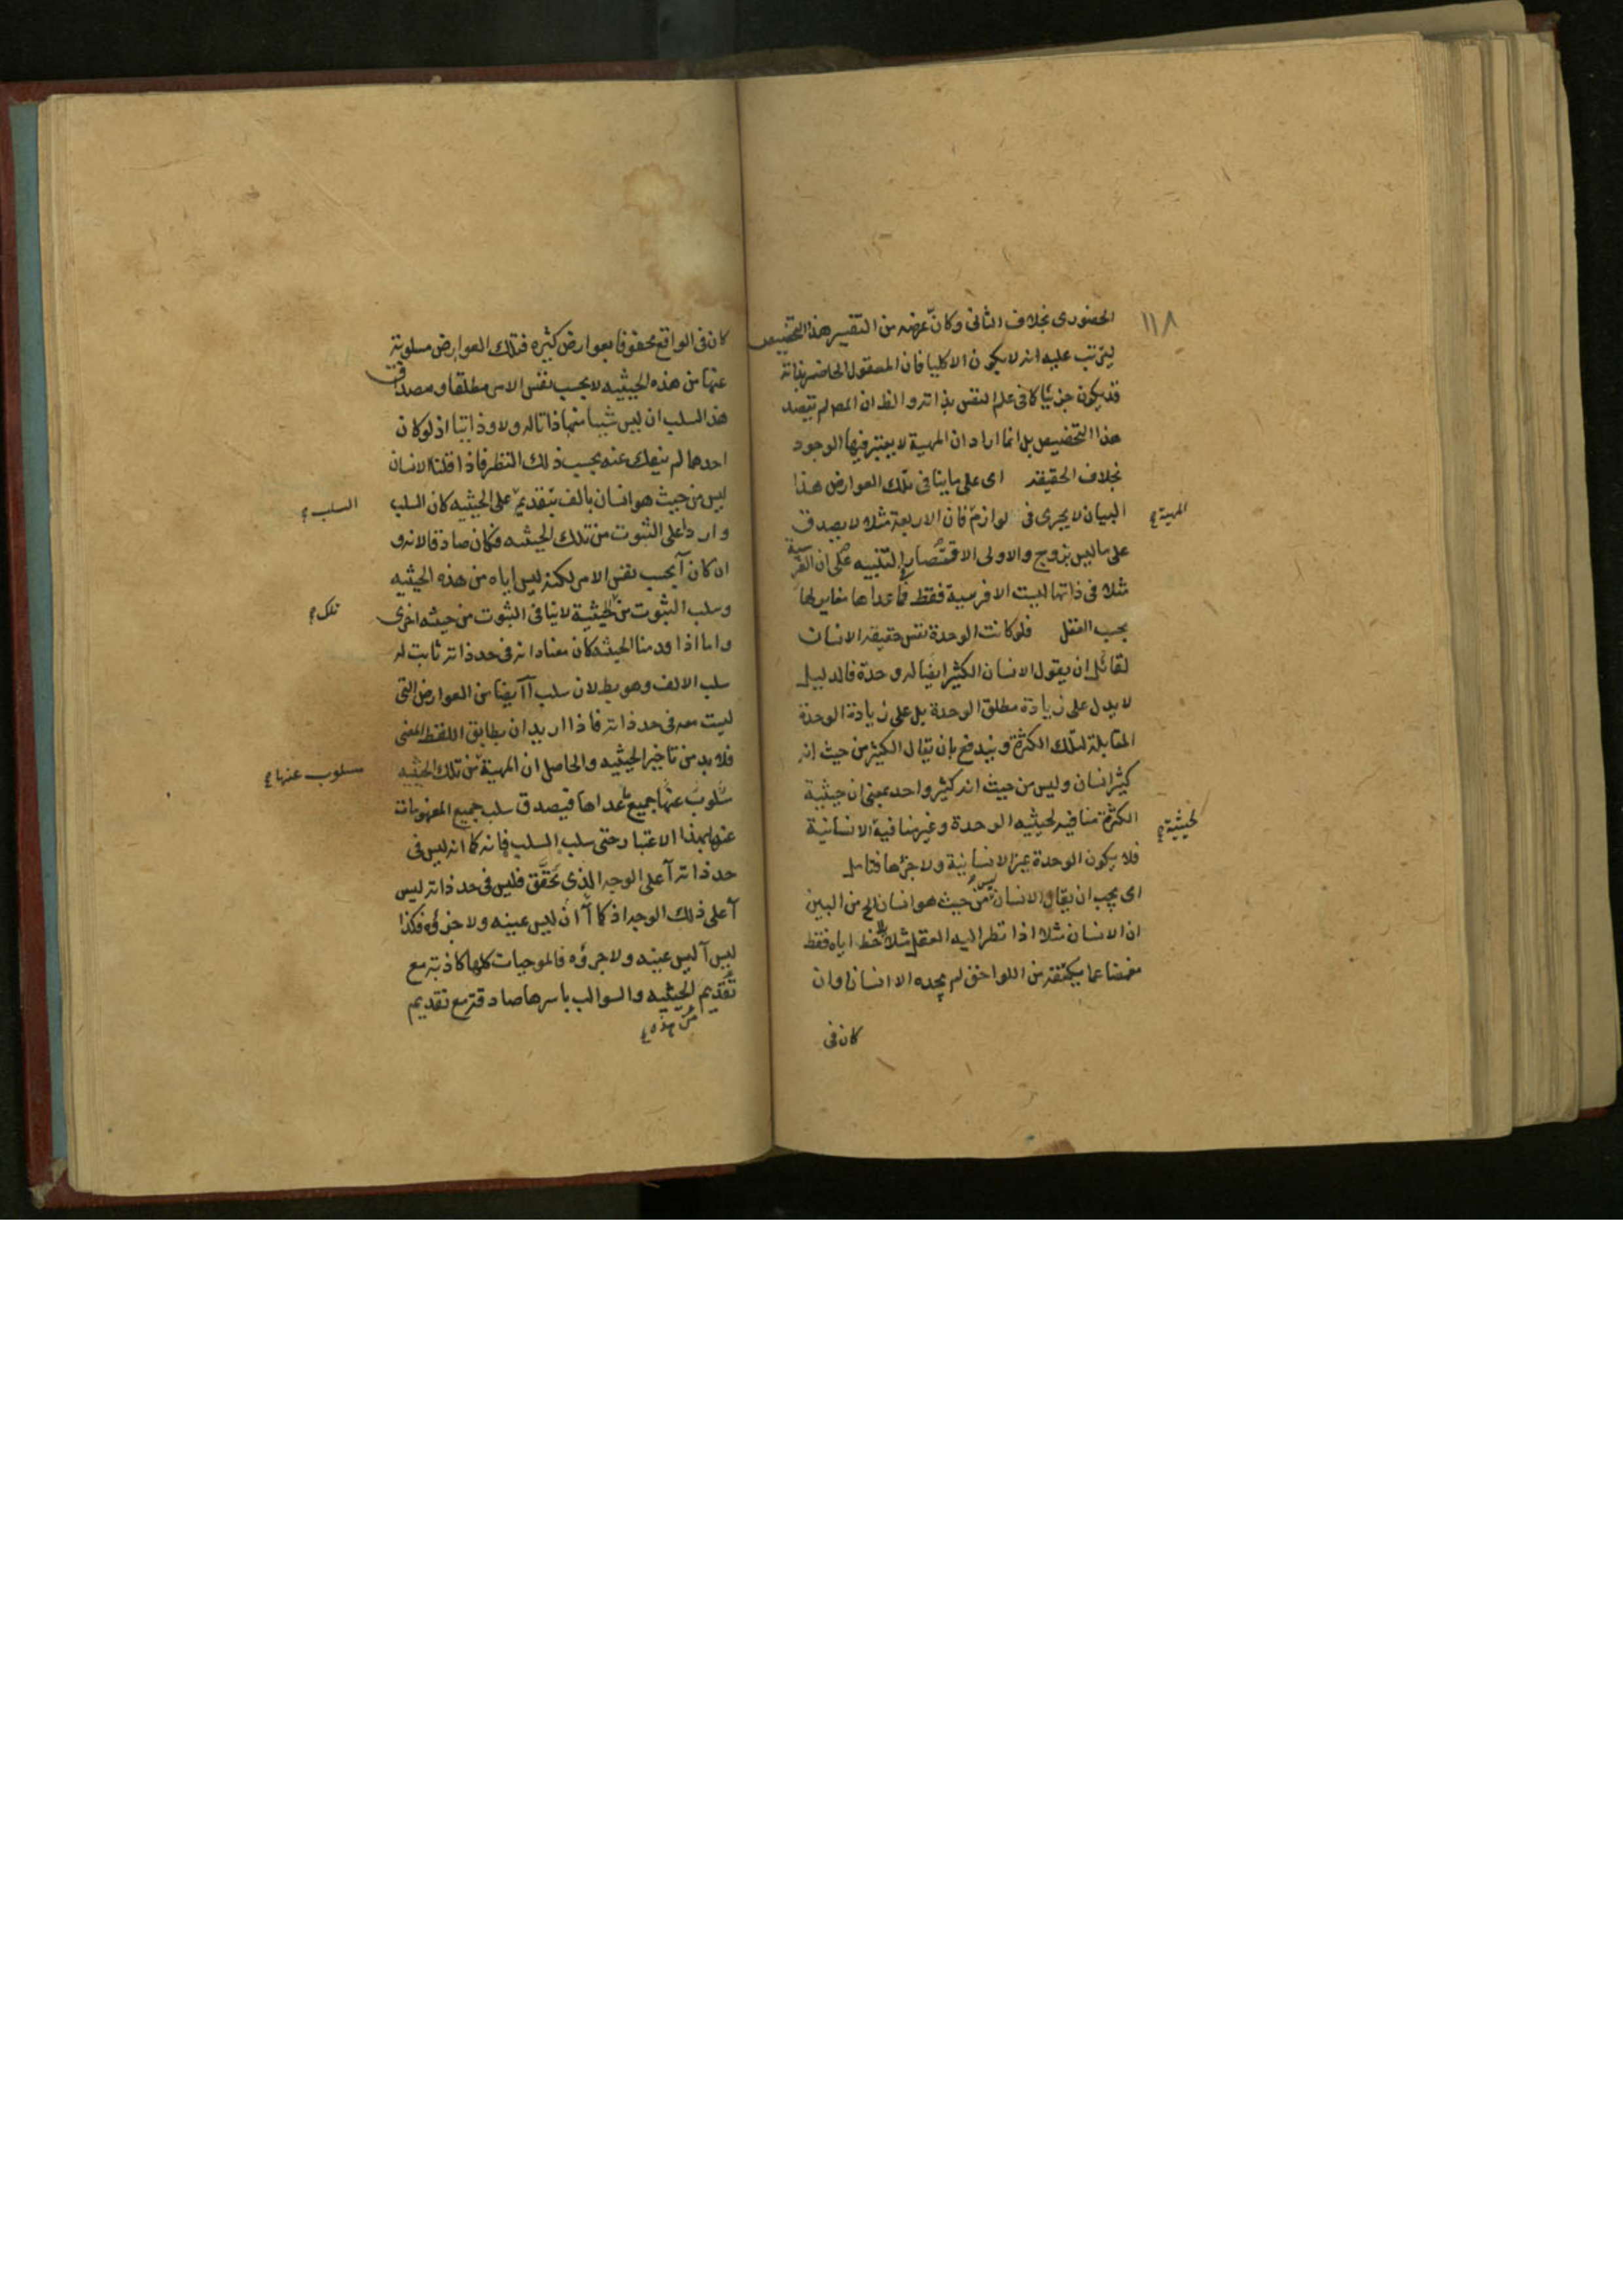 ١١٨
الحضوری بخلاف الثانی وکان غرضه من التفسیر هذا التخصیص
لیترتب علیه انه لا یکون الا کلیا فان المعقول الحاضر بذاته
قد یکون جزئیا کما فی علم النفس بذاته والظ ان المصم لم یقصد
هذا التخصیص بل انما اراد ان المهیة لا یعتبر فیها الوجود
بخلاف الحقیقه ای علی ما ینافی تلک العوارض هذا
البیان لا یجری فی لوازم فان الاربعة مثلا لا یصدق
المهیة
علی ما لیس بزوج والاولی الاقتصار التنبیه علی ان الفرسیة
مثلا فی ذاتها لیست الا فرسیة فقط فما عداها مغایر لها
بحسب العقل فلو کانت الوحدة نفس حقیقه الانسان
لقائل ان یقول الانسان الکثیر ایضا له وحدة فالدلیل
لا یدل علی زیادة مطلق الوحدة بل علی زیادة الوحدة
المقابلة لتلک الکثرة ویندفع بان یقال الکثیر من حیث انه
کثیر انسان ولیس من حیث انه کثیر واحد بمعنی ان حیثیة
الکثرة منافیه لحیثیه الوحدة وغیر منافیة الانسانیة
لحیثیة
فلا یکون الوحدة عین الانسانیة ولا جزءها فتامل
ای یجب ان یقال الانسان لیس من حیث هو انسان الخ من البین
ان الانسان مثلا اذا نظر الیه العقل مثلا لاحظ ایاه فقط
مغمضا عما یکتنفه من اللواحق لم یجده الا انسانا وان
کان فی
کان فی الواقع محفوفا بعوارض کثیره فتلک العوارض مسلوبة
عنها من هذه الحیثیه لا بحسب نفس الامر مطلقا ومصداق
هذا السلب ان لیس شیئا منها ذاتا له ولا ذاتیا اذ لو کان
احدهما لم ینفک عنه بحسب ذلک النظر فاذا قلنا الانسان
لیس من حیث هو انسان بالف بتقدیم علی الحیثیه کان السلب
السلب
واردا علی الثبوت من تلک الحیثیه فکان صادقا لانه و
ان کان آ بحسب نفس الامر لکنه لیس ایاه من هذه الحیثیه
وسلب الثبوت من الحیثیة لا ینافی الثبوت من حیثیه اخری
تلک
واما اذا قدمنا الحیثیه کان معناه انه فی حد ذاته ثابت له
سلب الالف وهو بط لان سلب آ ایضا من العوارض التی
لیست معه فی حد ذاته فاذا ارید ان یطابق اللفظ المعنی
فلا بد من تاخیر الحیثیه والحاصل ان المهیة من تلک الحیثیه
مسلوب عنها
مسلوب عنها جمیع ما عداها فیصدق سلب جمیع المفهومات
عنها بهذا الاعتبار حتی سلب السلب فانه کما انه لیس فی
حد ذاته آ علی الوجه الذی تحقق فلیس فی حد ذاته لیس
آ علی ذلک الوجه اذ کما ان آ لیس عینه ولا جزؤه فکذا
لیس آ لیس عینه ولا جزؤه فالموجبات کلها کاذبة مع
تقدیم الحیثیه والسوالب باسرها صادقة مع تقدیم
من هذه